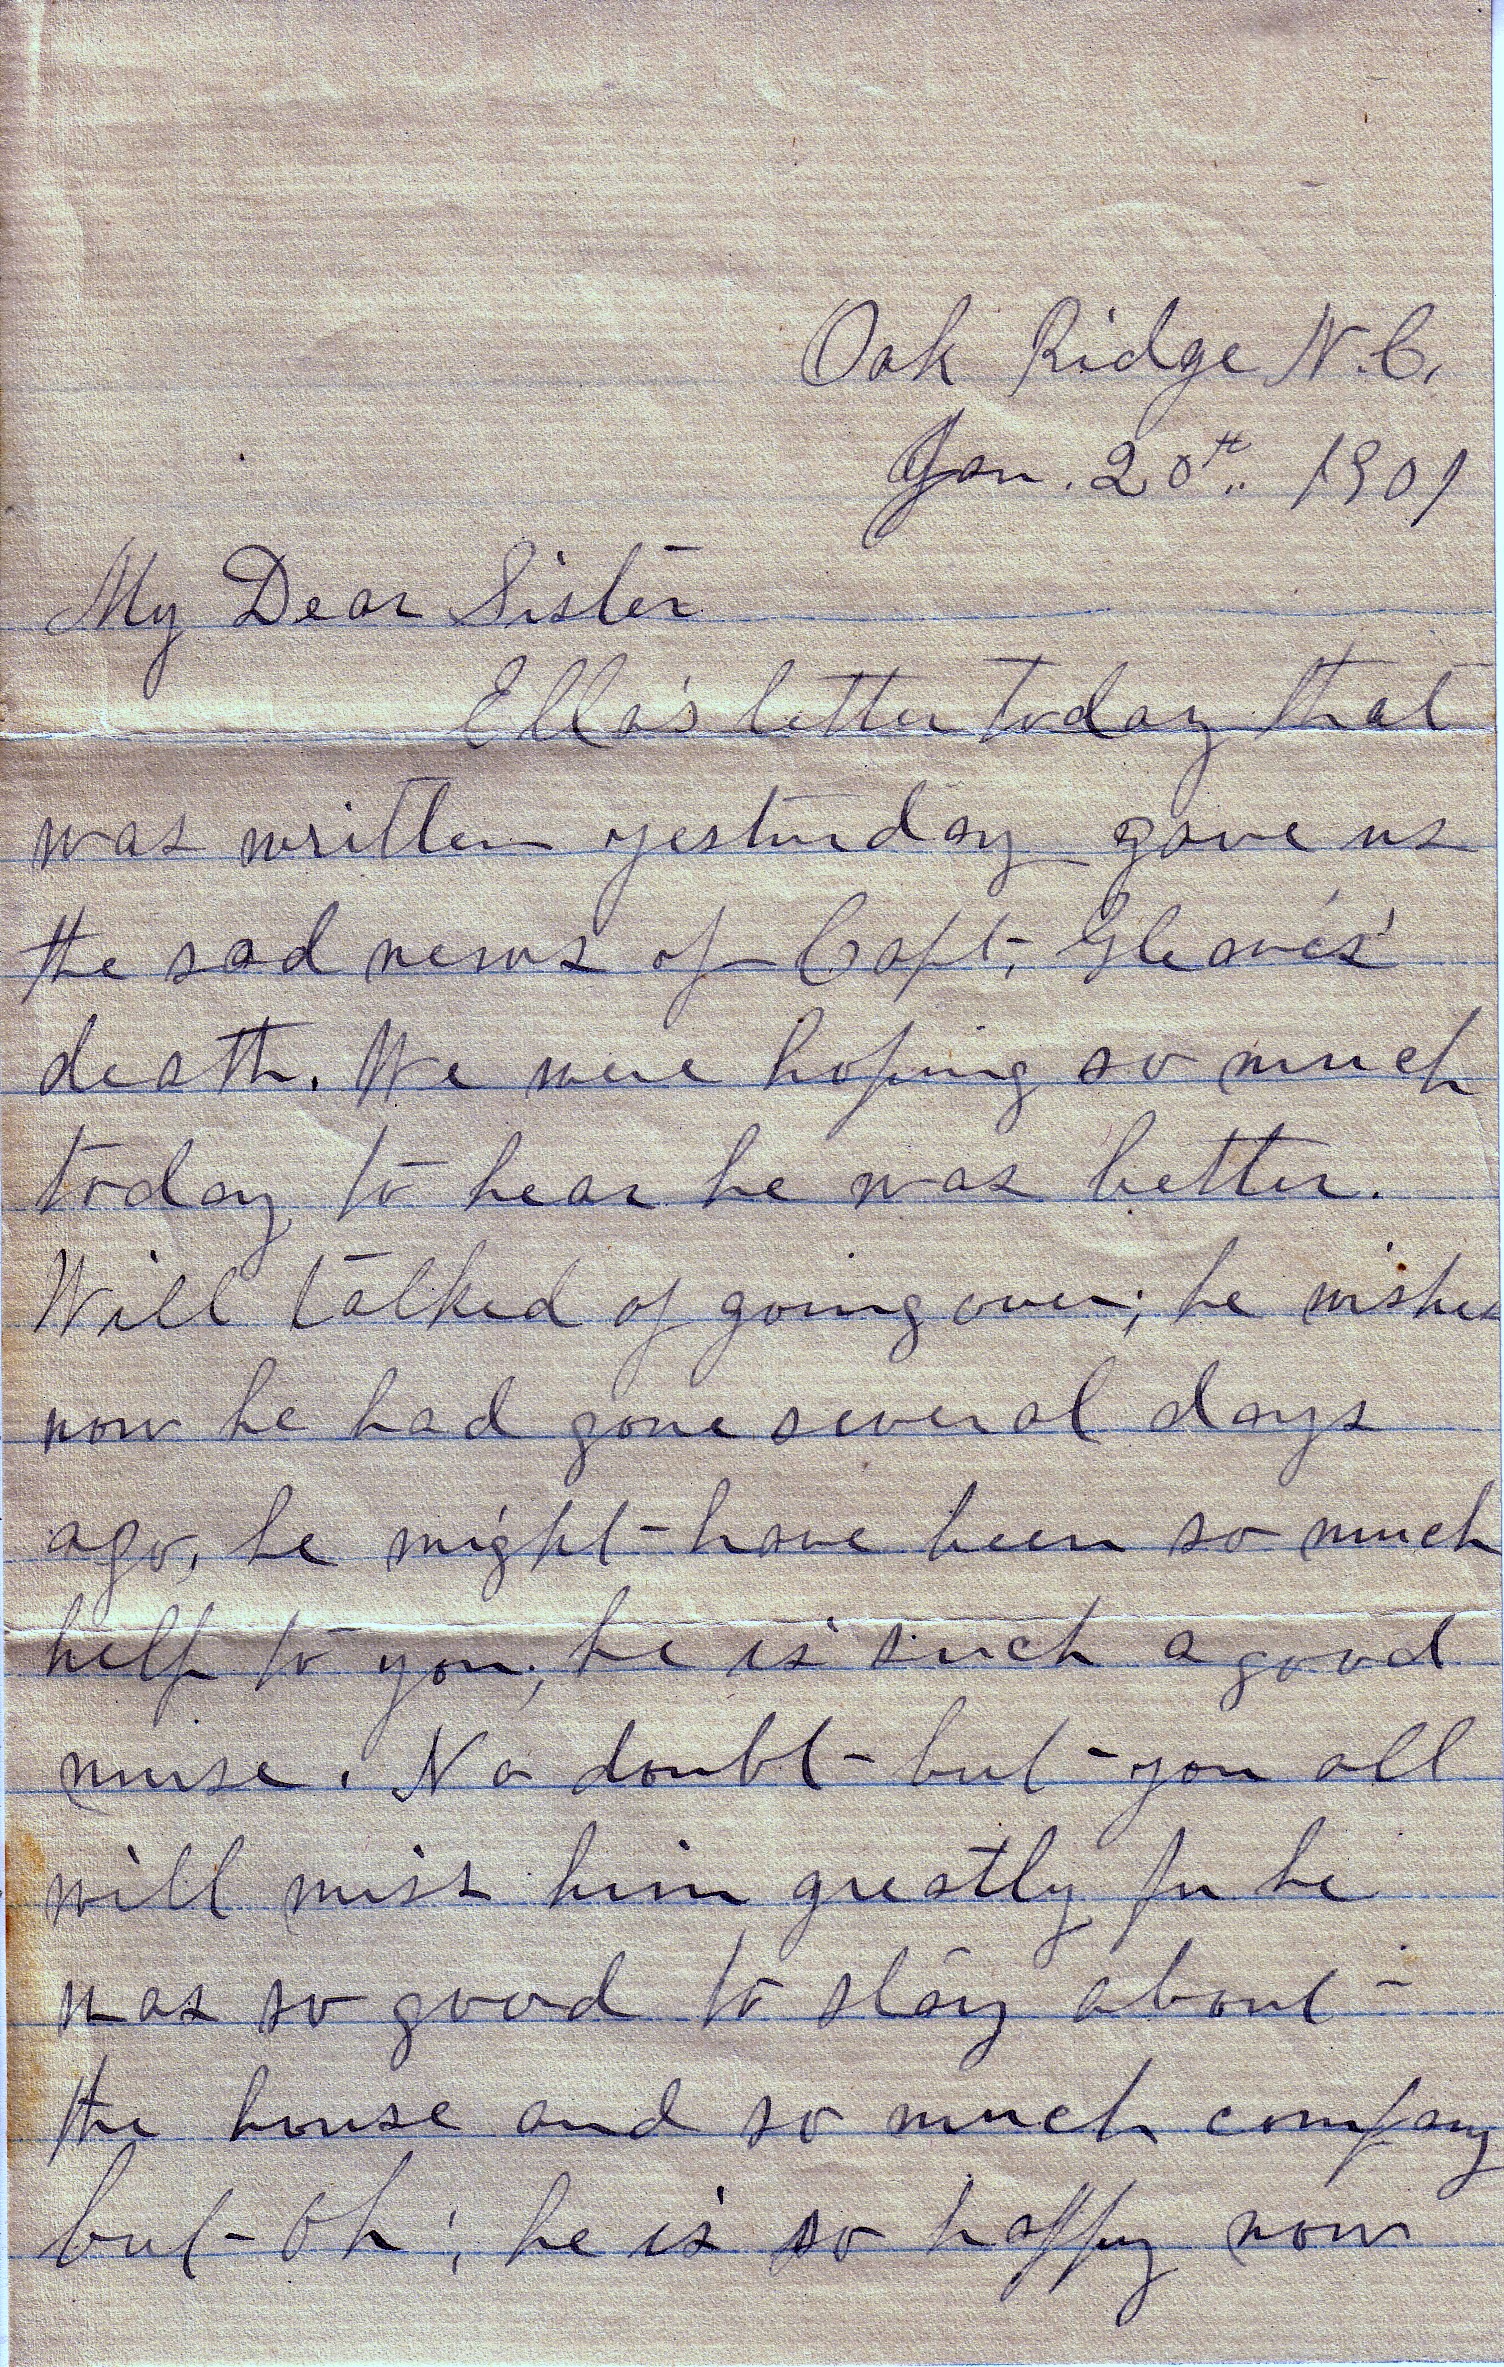 Oak Ridge N.C.
Jan. 20th. 1901
My Dear Sister
Ella's letter today that
was written yesturday gave us
the sad news of Capt. Gleaves'
death. We were hoping so much
today to hear he was better.
Will talked of going over; he wishes
now he had gone several days
ago, he might have been so much
help to you; he is such a good
nurse. No doubt but you all
will miss him greatly for he
was so good to stay about
the house and so much company
but Oh; he is so happy now